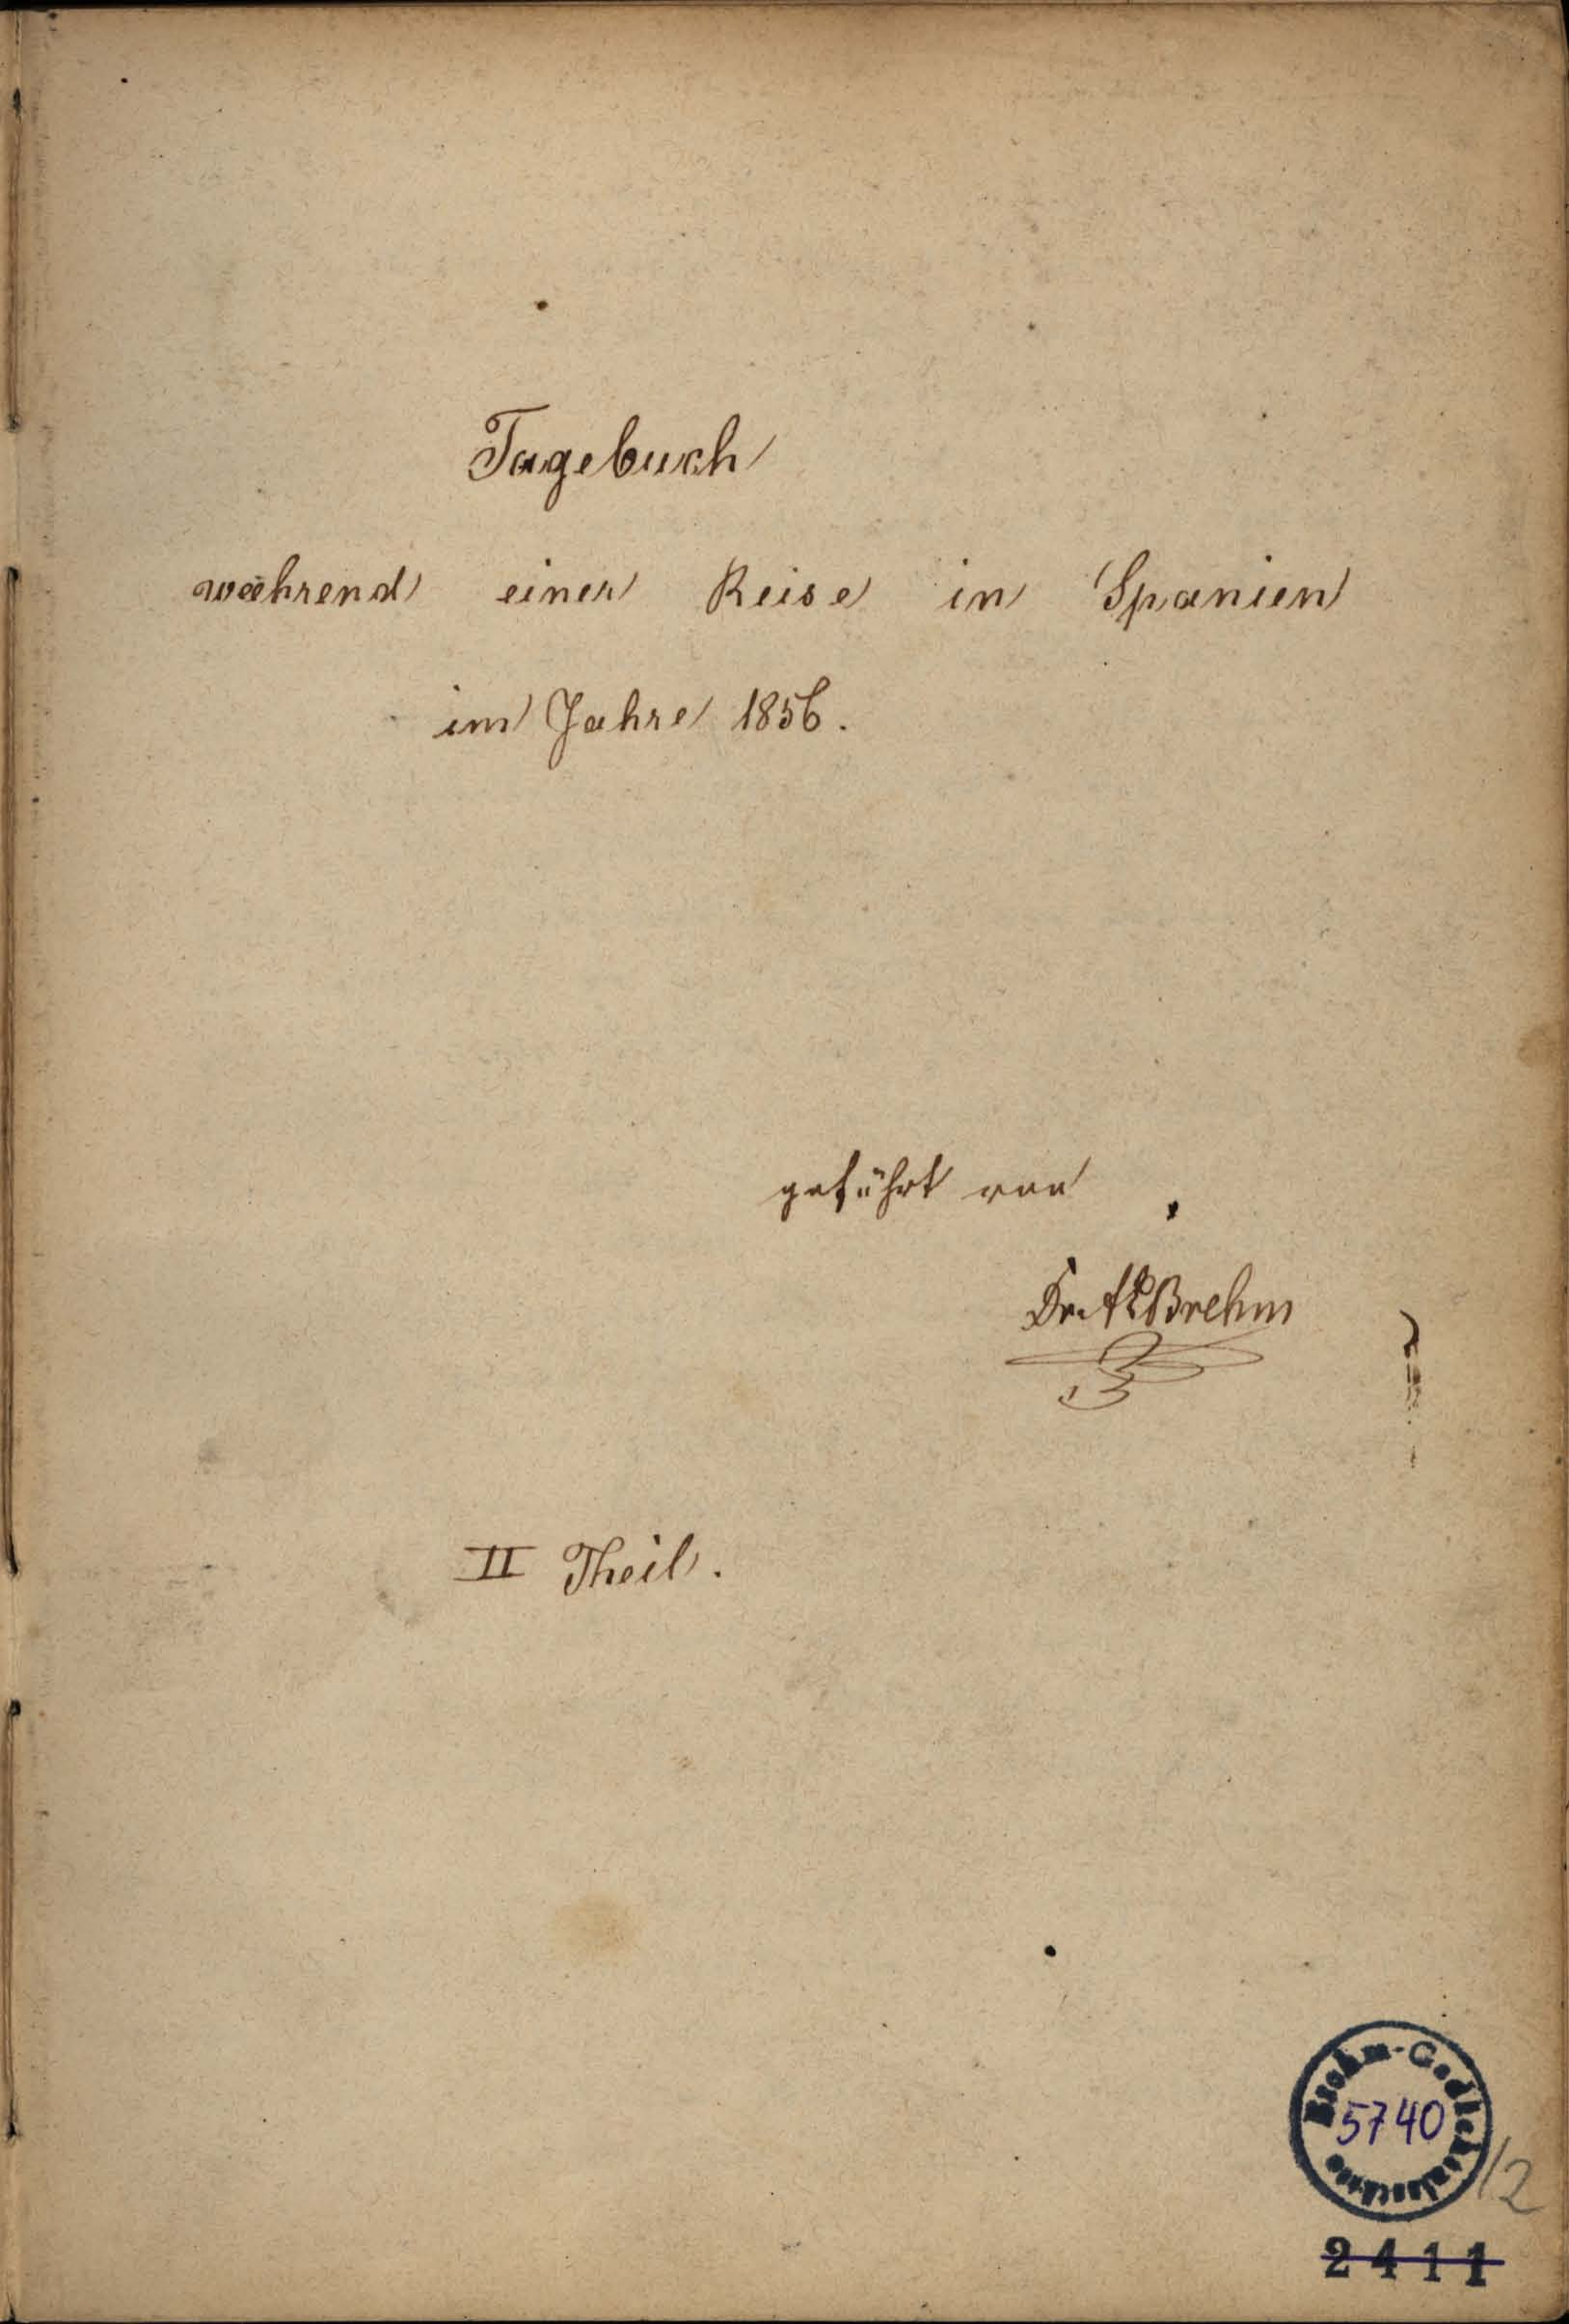 Tagebuch
während einer Reise in Spanien
im Jahre 1856.
geführt von
Dr. A E Brehm
II Theil.
Brehm-Gedächtnisstätte
5740
/2
2411